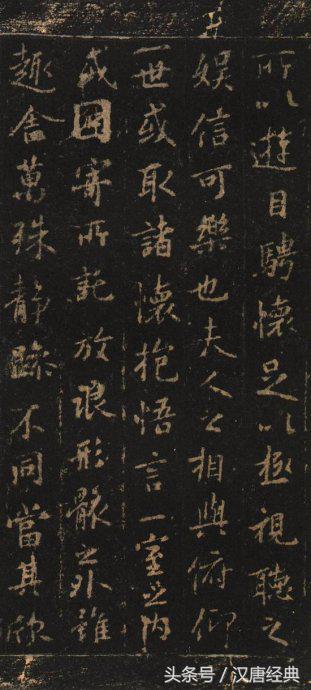 所以遊目騁懷足以極視聽之
娛信可樂也夫人之相與俯仰
一世或取諸懷抱悟言一室之內
或因寄所託放浪形骸之外雖
趣舍萬殊静躁不同當其欣
头条号／汉唐经典